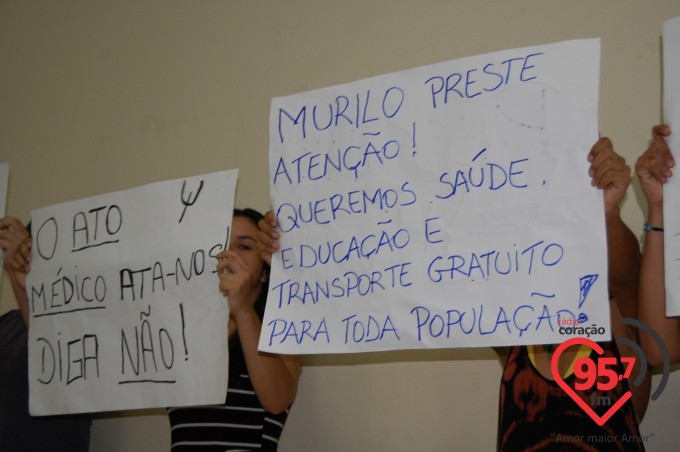 O ATO Ψ
MÉDICO ATA-NOS!
DIGA NÃO!
MURILO PRESTE
ATENÇÃO!
QUEREMOS SAÚDE.
EDUCAÇÃO E
TRANSPORTE GRATUITO
PARA TODA POPULAÇÃO!
rádio
coração
95,7
fm
"Amor maior Amor"